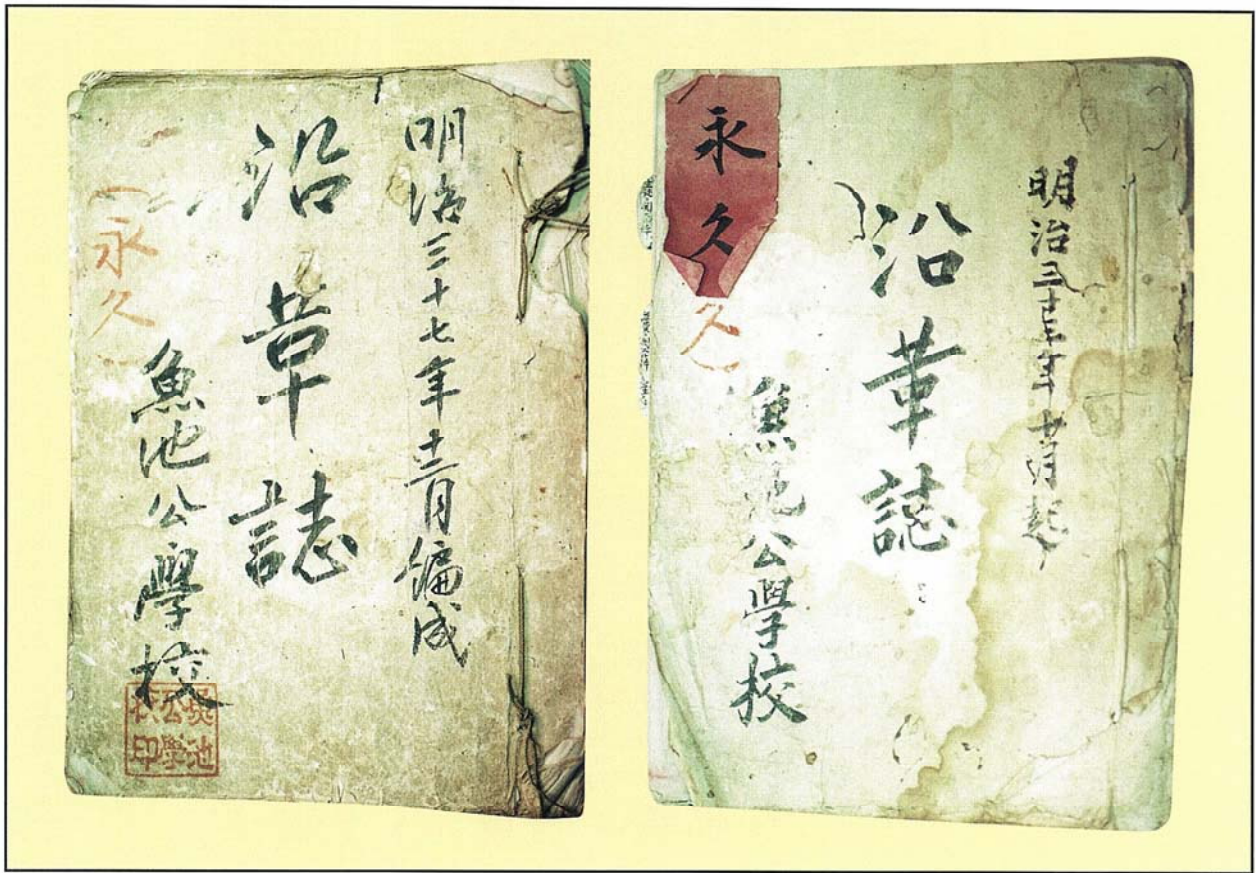 明治三十七年十二月編成
沿革誌
魚池公學校
(永久)
魚池公學校印
明治三十三年十一月起
沿革誌
魚池公學校
永久
久)